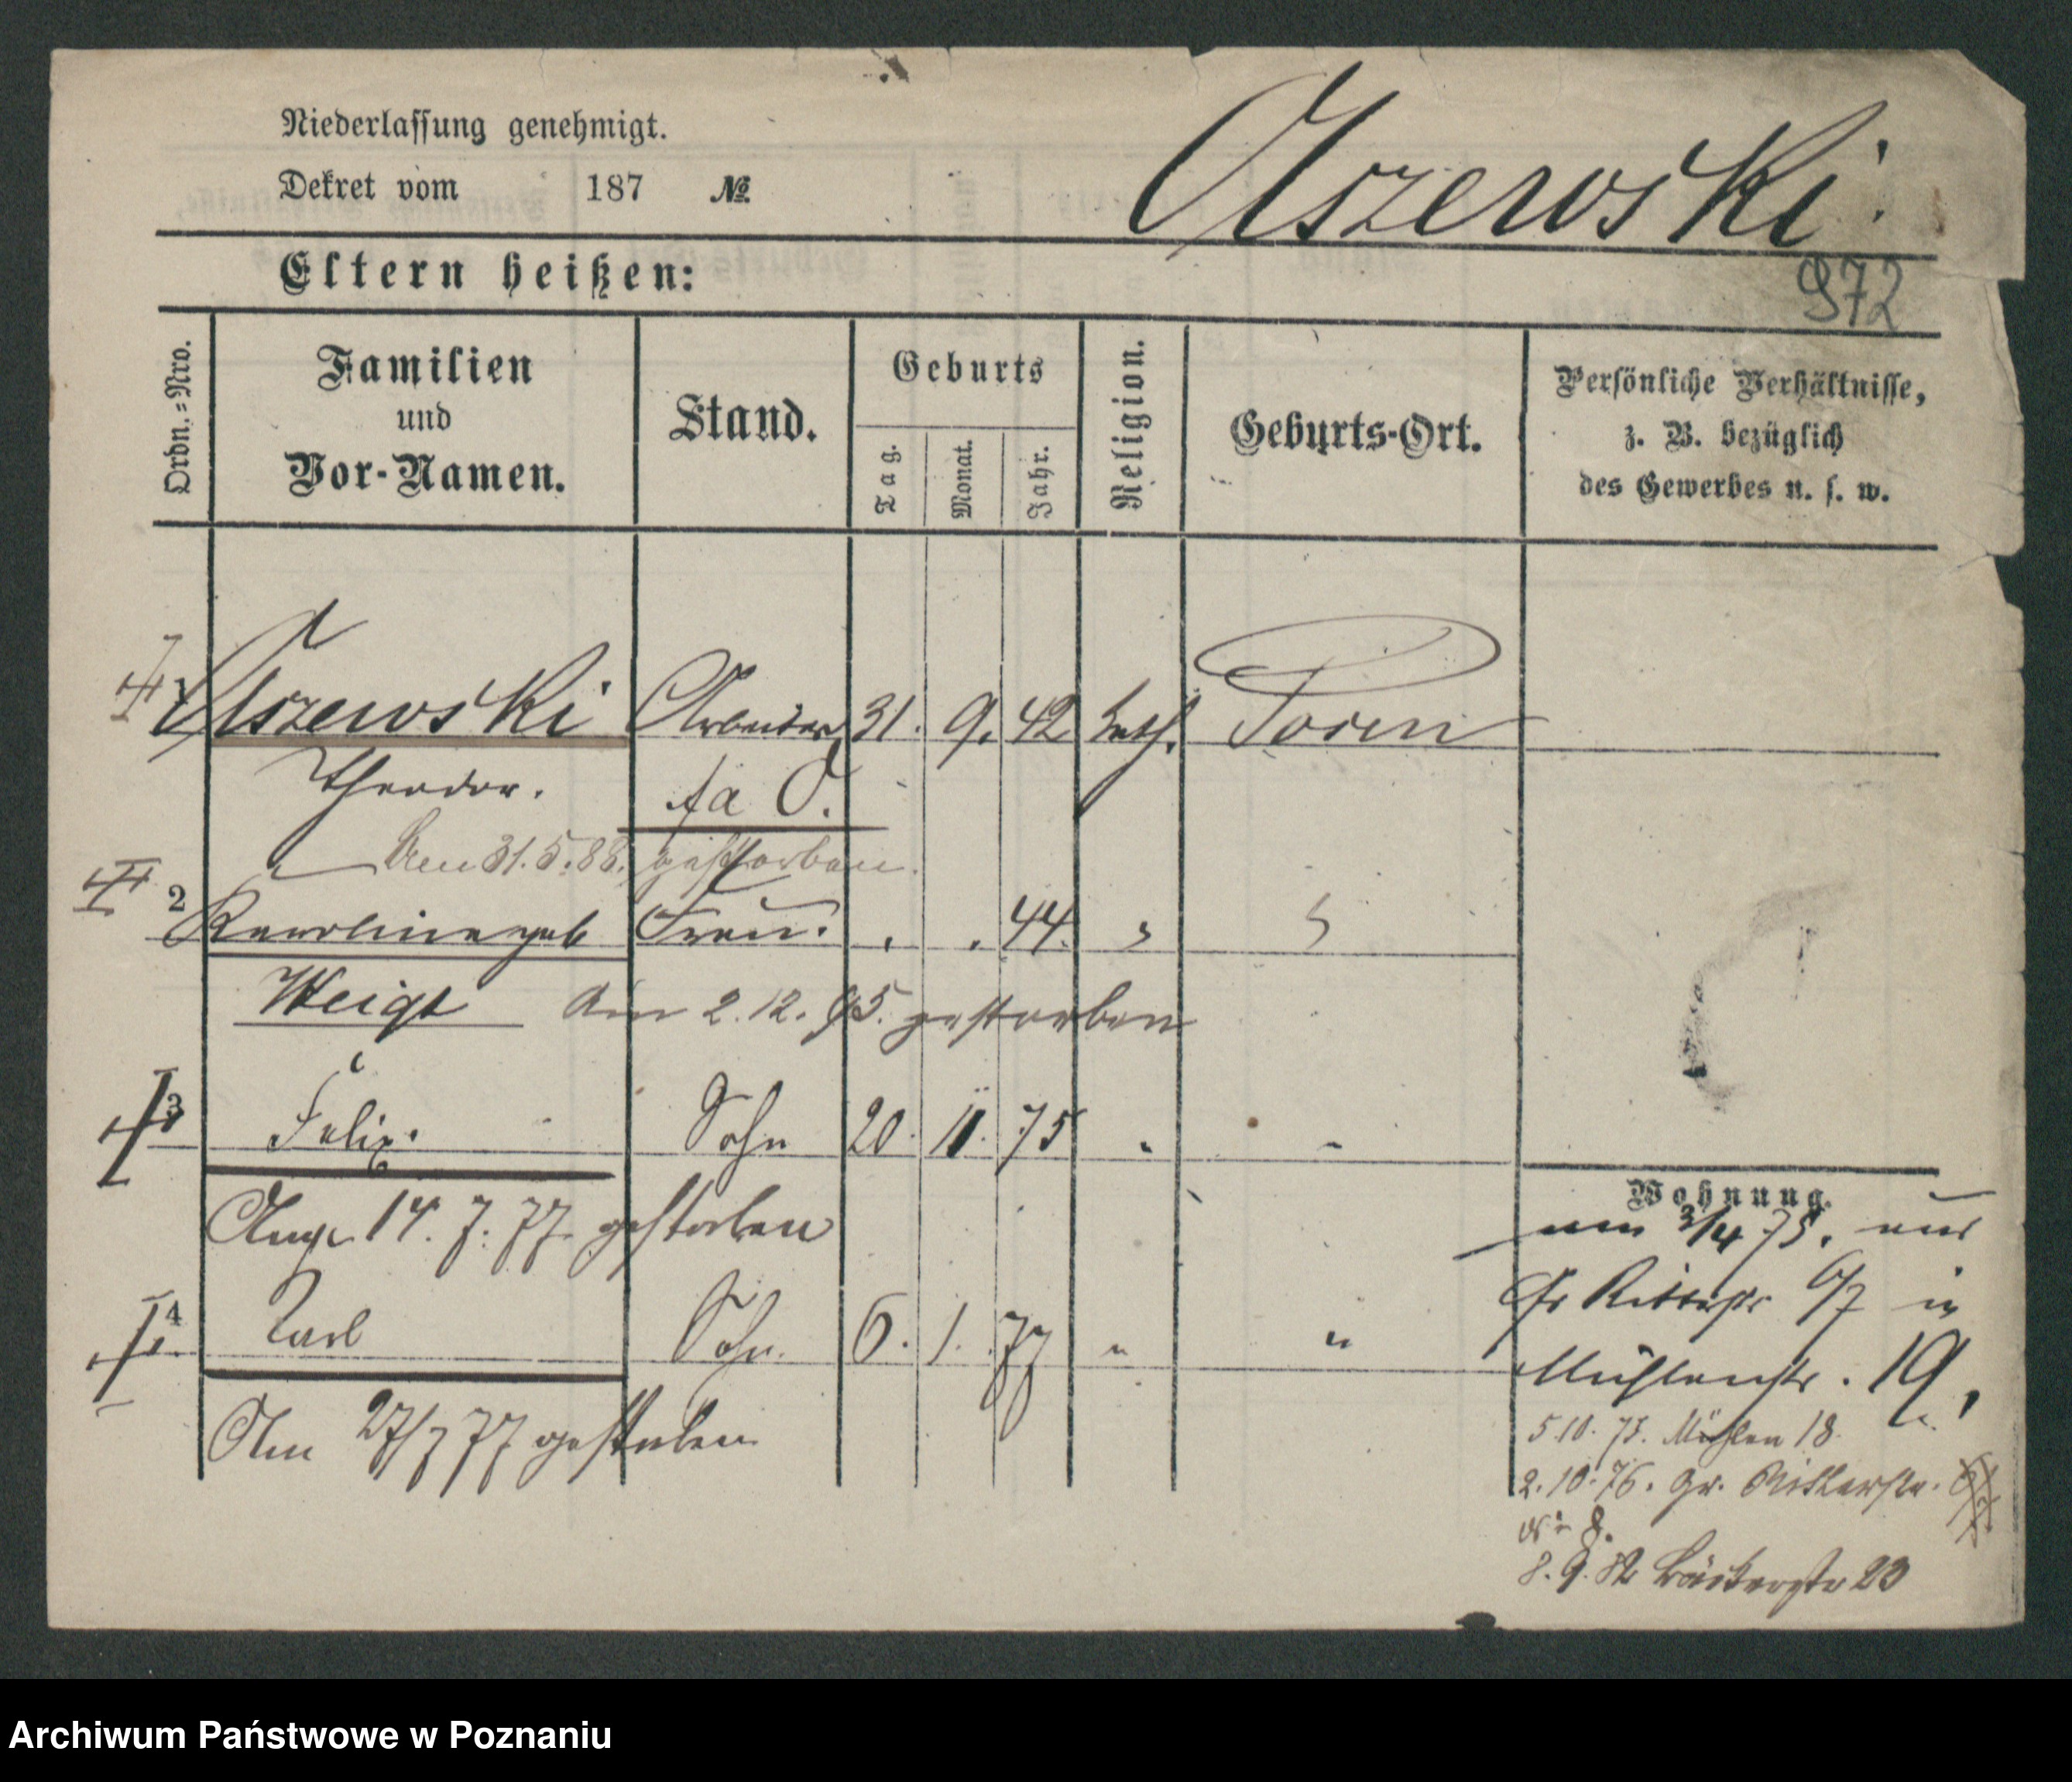 Niederlassung genehmigt.
Dekret vom 187 №
Olszewski.
Eltern heißen:
972
Ordn.=Nro.
Familien
und
Vor-Namen.
Stand.
Geburts
Tag.
Monat.
Jahr.
Religion.
Geburts-Ort.
Persönliche Verhältnisse,
z. B. bezüglich
des Gewerbes u. s. w.
Olszewski Arbeiter 31. 9. 42 kath. Posen
Theodor.
Den 31. 5. 88. gestorben.
2 Karoline geb Frau. 44.
Weigt Am 2. 12. 95. gestorben
3 Felix. Sohn 20. 11. 75
14. 7. 77 gestorben
4 Karl Sohn. 6. 1. 77 " "
Am 27/7 77 gestorben
Wohnung.
am 3/4 75. aus
Gr Ritterstr 6/7 in
Mühlenstr. 19.
5.10. 75. Mühlen 18
2. 10. 76. Gr. Ritterstr.
8.
8. 9. 82 Bäckerstr 23
Archiwum Państwowe w Poznaniu